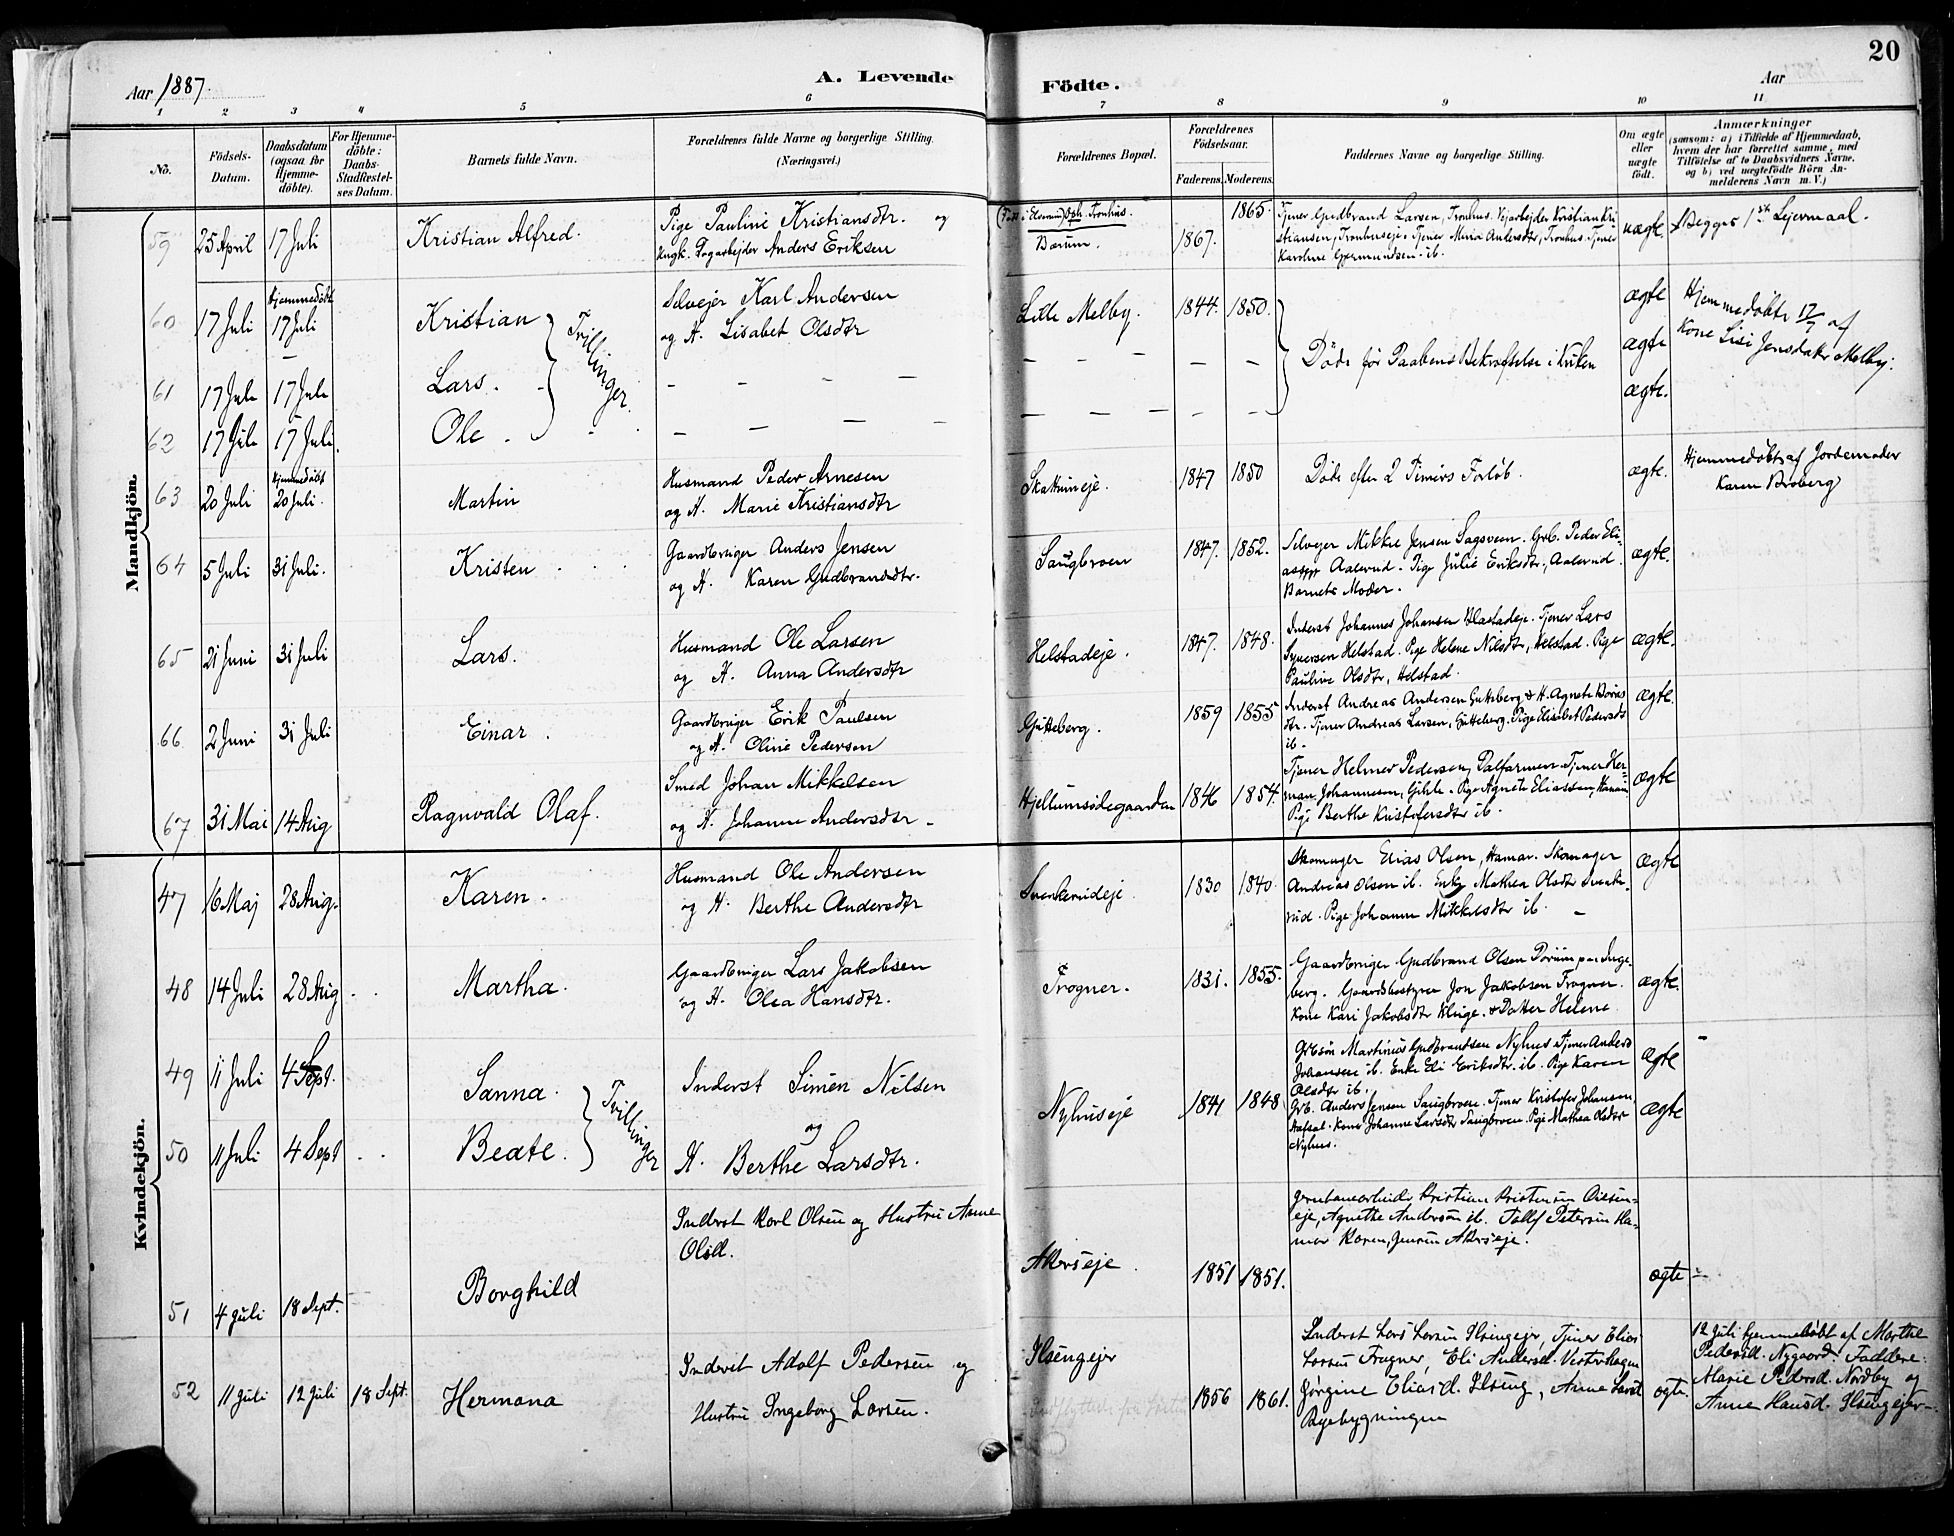 Aar 1887.
A. Levende
Födte.
Aar
20
1 2 3 4 5 6 7 8 9 10 11
No.
Födsels-
Datum.
Daabsdatum
(ogsaa for
Hjemme-
döbte).
For Hjemme-
döbte:
Daabs-
Stadfæstel-
ses Datum.
Barnets fulde Navn.
Forældrenes fulde Navne og borgerlige Stilling.
(Næringsvei.)
Forældrenes Bopæl.
Forældrenes
Födselsaar.
Faderens. Moderens.
Faddernes Navne og borgerlige Stilling.
Om ægte
eller
uægte
födt.
Anmærkninger
(saasom: a) i Tilfælde af Hjemmedaab,
hvem der har forrettet samme, med
Tilföielse af to Daabsvidners Navne.
og b) ved uægtefödte Börn An-
melderens Navn m. V.)
Mandkjön.
59 25 April 17 Juli Kristian Alfred.
Pige Pauline Kristiansdtr. og
Ungk. Dagarbejder Anders Eriksen
Tronhus.
Bærum.
1867. 1865.
Tjener Gudbrand Larsen, Tronhus. Vejarbejder Kristian Kri
stiansen, Tronhuseje. Tjener Maria Andersdtr, Tronhus. Tjener
Karoline Gjermundsen ib.
uægte.
Begges 1ste Lejermaal.
60 17 Juli Hjemmedøbt
17 Juli Kristian
Tvillinger
Selvejer Karl Andersen
og H. Lisabet Olsdtr
Lille Melby. 1844. 1850.
Døde før Daabens Bekræftelse i Kirken
ægte
Hjemmedøbte 17/7 af
Kone Lisi Jensdatr Melby.
61 17 Juli 17 Juli Lars. — — — — ægte
62 17 Juli 17 Juli Ole. — — — — ægte.
63 20 Juli Hjemmedøbt
20 Juli. Martin
Husmand Peder Arnesen
og H. Marie Kristiansdtr
Skattumeje. 1847 1850
Døde efter 2 Timers Forløb.
ægte.
Hjemmedøbt af Jordemoder
Karen Broberg
64 5 Juli 31 Juli. Kristen
Gaardbruger Anders Jensen
og H. Karen Gudbrandsdtr.
Saugbroen 1847. 1852.
Selvejer Mikkel Jensen Sagsveen. Grb. Peder Eli-
assen Aalerud. Pige Julie Eriksdtr., Aalerud.
Barnets Moder.
ægte.
65 21 Juni 31 Juli Lars.
Husmand Ole Larsen
og H. Anna Andersdtr
Helstadeje. 1847. 1848.
Inderst Johannes Johansen Blastadeje. Tjener Lars
Syversen Helstad. Pige Helene Nilsdtr, Helstad. Pige
Pauline Olsdtr, Helstad.
ægte.
66 2 Juni 31 Juli Einar.
Gaardbruger Erik Paulsen
og H. Oline Pedersen
Gutteberg. 1859 1855
Inderst Andreas Andersen Gutteberg & H. Agnete
dtr. Tjener Andreas Larsen, Gutteberg. Pige Elisabet Pedersdtr
ib.
ægte.
67 31 Mai 14 Aug. Ragnvald Olaf.
Smed Johan Mikkelsen
og H. Johanne Andersdtr.
Hjellumsødegaarden 1846 1854.
Tjener Helmer Pedersen, Dalfarmen. Tjener Her-
man Johannesen, Gihle. Pige Agnete Eliassen, Hamar.
Pige Berthe Kristofersdtr ib.
ægte
Kvindekjön.
47 16 Maj 28 Aug. Karen.
Husmand Ole Andersen
og H. Berthe Andersdtr
Svenkerudeje. 1830 1840.
Skomager Elias Olsen, Hamar. Skomager
Andreas Olsen ib. Enke Mathea Olsdtr Svenke-
rud. Pige Johanne Mikkelsdtr ib.
ægte
48 14 Juli 28 Aug. Martha.
Gaardbruger Lars Jakobsen
og H. Olea Hansdtr.
Frogner. 1831. 1855.
Gaardbruger Gudbrand Olsen Inge-
berg. Gaardbestyrer Jon Jakobsen Frogner.
Kone Kari Jakobsdtr Klinge. & Datter Helene
ægte.
49 11 Juli 4 Sept. Sanna.
Tvillinger
Inderst Simen Nilsen
og
H. Berthe Larsdtr.
Nyhuseje 1841 1848
Grbsøn Martinius Gudbrandsen Nyhus. Tjener Anders
Johansen ib. Enke Eli Eriksdtr. ib. Pige Karen
Olsdtr ib.
ægte
50 11 Juli 4 Sept Beate.
Grb. Anders Jensen Saugbroen. Tjener Kristofer Johansen,
Aafsal. Kone Johanne Larsdtr Saugbroen. Pige Mathea Olsdtr
Nyhus.
ægte
51 4 Juli 18 Sept. Borghild
Inderst Karl Olsen og Hustru Anne
Olsd.
Akerseje. 1851 1851.
Jernbanearbeider Kristian Kristensen
eje, Agnethe Andersen ib. Tollef Petersen Ha-
mar Karen Jensen Akerseje.
ægte
52 11 Juli 12 Juli 18 Sept. Hermana
Inderst Adolf Pedersen og
Hustru Ingeborg Larsen.
Ilsengejer 1856 1861.
Inderst Lars Larsen Ilsengejer, Tjener Elias
Larsen Frogner, Eli Andersd. Vesterhagen
Jørgine Eliasd. Ilseng, Anne Larsd
Byebygningen
ægte.
12 Juli hjemmedøbt af Marthe
Pedersd. Nygaard. Faddere:
Marie Pedersd. Nordby og
Anne Hansd. Ilsengejer.